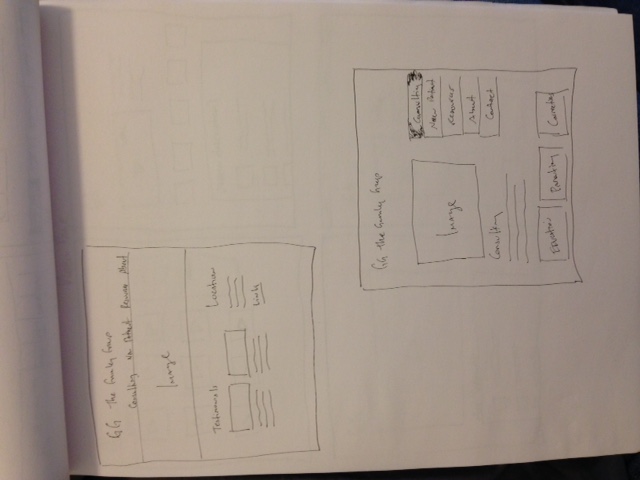 GG The Gumley Group
Consulting New Patient Resources About
Image
Testimonials
Location
Link
GG The Gumley Group
Consulting
New Patient
Resources
About
Contact
Image
Consulting
Education
Parenting